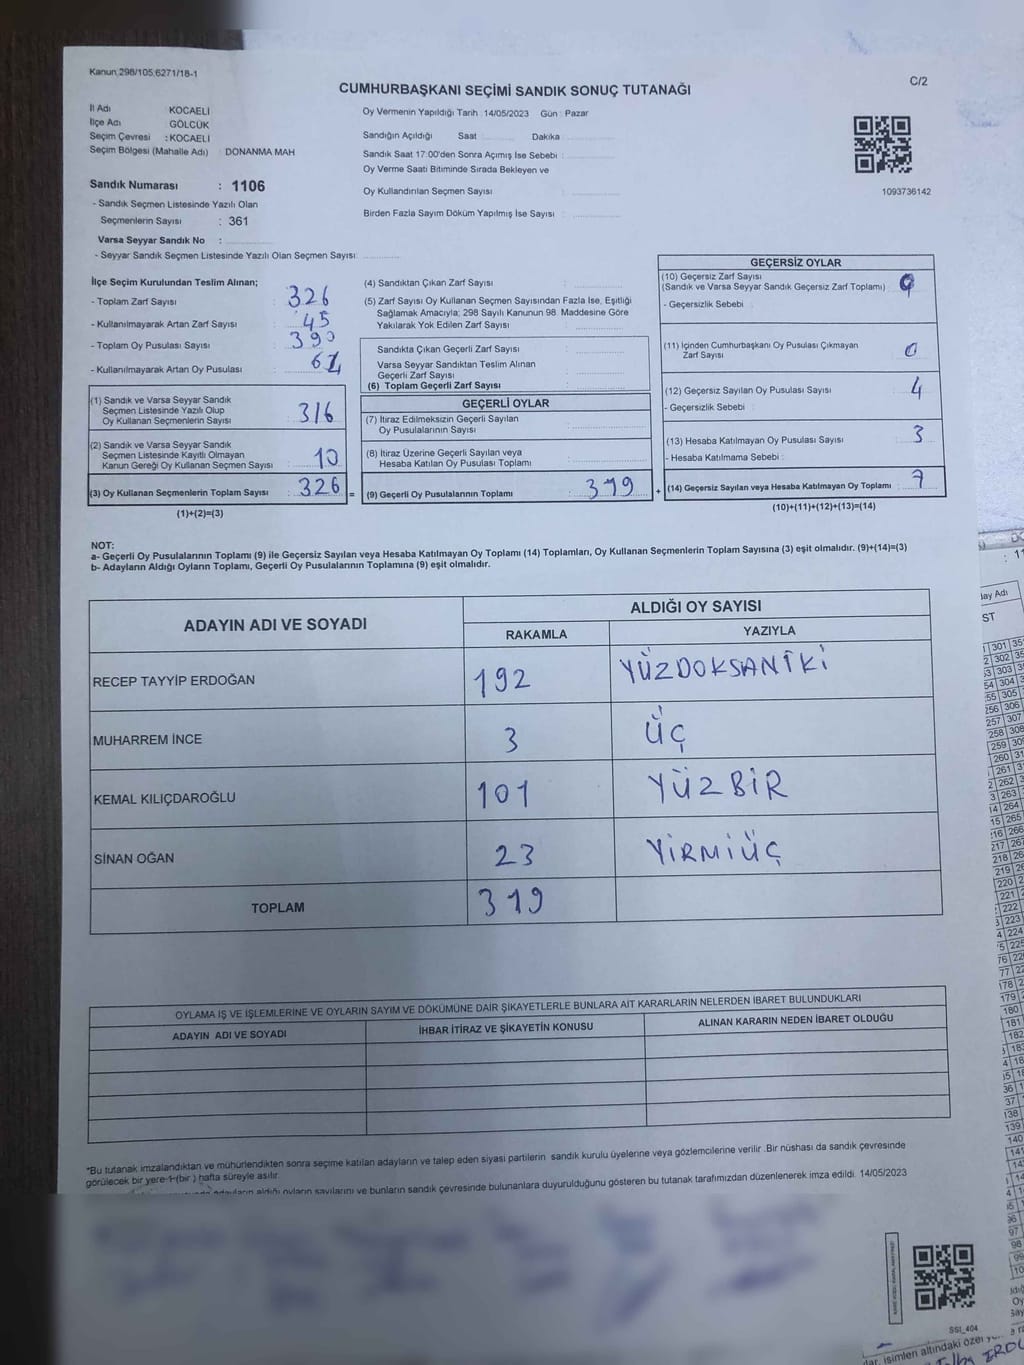 Kanun 298/105 6271/18-1
C/2
CUMHURBAŞKANI SEÇİMİ SANDIK SONUÇ TUTANAĞI
İl Adı KOCAELİ
İlçe Adı GÖLCÜK
Seçim Çevresi : KOCAELİ
Seçim Bölgesi (Mahalle Adı) DONANMA MAH
Sandık Numarası : 1106
- Sandık Seçmen Listesinde Yazılı Olan
Seçmenlerin Sayısı : 361
Varsa Seyyar Sandık No :
- Seyyar Sandık Seçmen Listesinde Yazılı Olan Seçmen Sayısı:
Oy Vermenin Yapıldığı Tarih : 14/05/2023 Gün : Pazar
Sandığın Açıldığı Saat Dakika
Sandık Saat 17:00'den Sonra Açımış İse Sebebi :
Oy Verme Saati Bitiminde Sırada Bekleyen ve
Oy Kullandırılan Seçmen Sayısı
Birden Fazla Sayım Döküm Yapılmış İse Sayısı
1093736142
İlçe Seçim Kurulundan Teslim Alınan;
- Toplam Zarf Sayısı 326
- Kullanılmayarak Artan Zarf Sayısı : 45
- Toplam Oy Pusulası Sayısı 390
- Kullanılmayarak Artan Oy Pusulası
(1) Sandık ve Varsa Seyyar Sandık
Seçmen Listesinde Yazılı Olup
Oy Kullanan Seçmenlerin Sayısı 316
(2) Sandık ve Varsa Seyyar Sandık
Seçmen Listesinde Kayıtlı Olmayan
Kanun Gereği Oy Kullanan Seçmen Sayısı 10
(3) Oy Kullanan Seçmenlerin Toplam Sayısı : 326 =
(1)+(2)=(3)
(4) Sandıktan Çıkan Zarf Sayısı :
(5) Zarf Sayısı Oy Kullanan Seçmen Sayısından Fazla İse, Eşitliği
Sağlamak Amacıyla; 298 Sayılı Kanunun 98. Maddesine Göre
Yakılarak Yok Edilen Zarf Sayısı :
Sandıkta Çıkan Geçerli Zarf Sayısı :
Varsa Seyyar Sandıktan Teslim Alınan
Geçerli Zarf Sayısı :
(6) Toplam Geçerli Zarf Sayısı :
GEÇERLİ OYLAR
(7) İtiraz Edilmeksizin Geçerli Sayılan
Oy Pusulalarının Sayısı :
(8) İtiraz Üzerine Geçerli Sayılan veya
Hesaba Katılan Oy Pusulası Toplamı :
(9) Geçerli Oy Pusulalarının Toplamı : 319 +
GEÇERSİZ OYLAR
(10) Geçersiz Zarf Sayısı
(Sandık ve Varsa Seyyar Sandık Geçersiz Zarf Toplamı) : 0
- Geçersizlik Sebebi
(11) İçinden Cumhurbaşkanı Oy Pusulası Çıkmayan
Zarf Sayısı 0
(12) Geçersiz Sayılan Oy Pusulası Sayısı 4
- Geçersizlik Sebebi
(13) Hesaba Katılmayan Oy Pusulası Sayısı 3
- Hesaba Katılmama Sebebi
(14) Geçersiz Sayılan veya Hesaba Katılmayan Oy Toplamı : 7
(10)+(11)+(12)+(13)=(14)
NOT:
a- Geçerli Oy Pusulalarının Toplamı (9) ile Geçersiz Sayılan veya Hesaba Katılmayan Oy Toplamı (14) Toplamları, Oy Kullanan Seçmenlerin Toplam Sayısına (3) eşit olmalıdır. (9)+(14)=(3)
b- Adayların Aldığı Oyların Toplamı, Geçerli Oy Pusulalarının Toplamına (9) eşit olmalıdır.
ADAYIN ADI VE SOYADI ALDIĞI OY SAYISI
RAKAMLA YAZIYLA
RECEP TAYYİP ERDOĞAN 192 YÜZDOKSANİKİ
MUHARREM İNCE 3 ÜÇ
KEMAL KILIÇDAROĞLU 101 YÜZBİR
SİNAN OĞAN 23 YİRMİÜÇ
TOPLAM 319
OYLAMA İŞ VE İŞLEMLERİNE VE OYLARIN SAYIM VE DÖKÜMÜNE DAİR ŞİKAYETLERLE BUNLARA AİT KARARLARIN NELERDEN İBARET BULUNDUKLARI
ADAYIN ADI VE SOYADI İHBAR İTİRAZ VE ŞİKAYETİN KONUSU ALINAN KARARIN NEDEN İBARET OLDUĞU
*Bu tutanak imzalandıktan ve mühürlendikten sonra seçime katılan adayların ve talep eden siyasi partilerin sandık kurulu üyelerine veya gözlemcilerine verilir .Bir nüshası da sandık çevresinde
görülecek bir yere 1-(bir ) hafta süreyle asılır.
adayların aldığı oyların sayılarını ve bunların sandık çevresinde bulunanlara duyurulduğunu gösteren bu tutanak tarafımızdan düzenlenerek imza edildi. 14/05/2023
SSI_404
isimleri altındaki özel